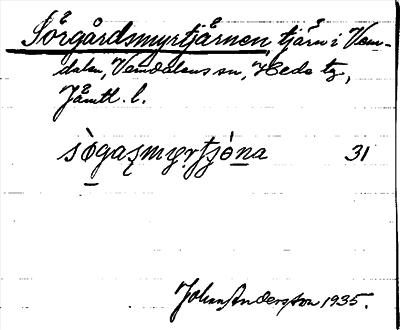 Sörgårdsmyrtjärnen, tjärn i Vem-
dalen, Vemdalens sn, Hede tg,
Jämtl. l.
sògaʂmyrtjòna 31
Johan Andersson 1935.